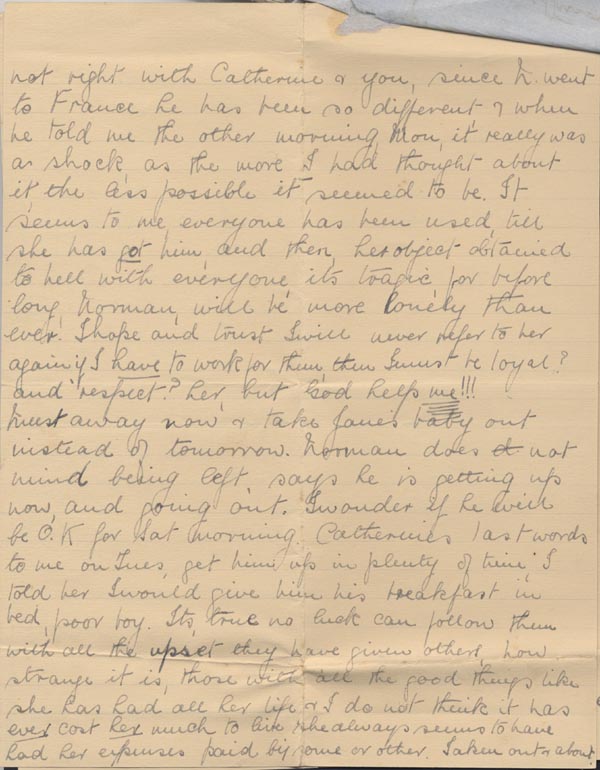 not right with Catherine & you, since N. went
to France he has been so different & when
he told me the other morning, Mon, it really was
a shock, as the more I had thought about
it, the less possible it seemed to be. It
seems to me, everyone has been used, till
she has got him, and then, her object obtained
to hell with everyone, its tragic, for before
long, Norman, will be more lonely than
ever. I hope and trust I will never refer to her
again if I have to work for them, then I must be loyal?
and "respect"? her, but God help me!!!
Must away now & take Jane's baby out
instead of tomorrow. Norman does not
mind being left, says he is getting up
now, and going out. I wonder if he will
be O.K for Sat morning. Catherines last words
to me on Tues, get him up in plenty of time, I
told her I would give him his breakfast in
bed, poor boy. Its, true no luck can follow them
with all the upset they have given others, how
strange it is, those with all the good things like
she has had all her life & I do not think it has
ever cost her much to live, she always seems to have
had her expenses paid by some or other. Taken out & about